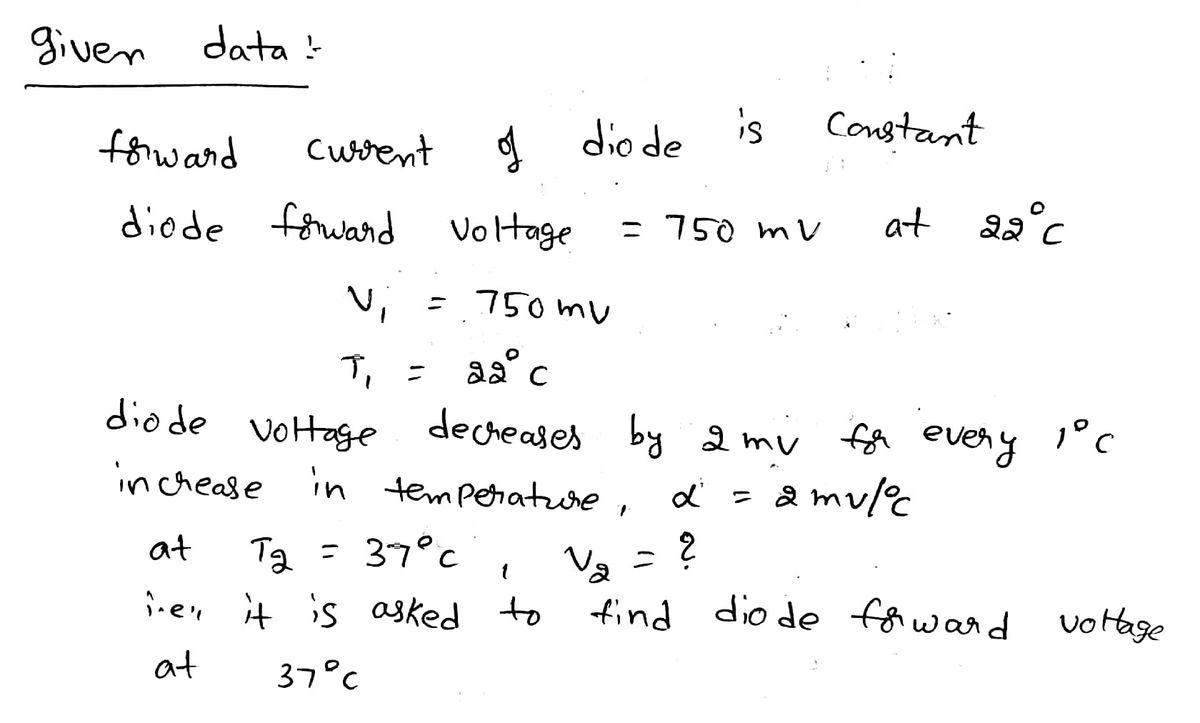 given data :-
forward current of diode is constant
diode forward voltage = 750 mv at 22°c
V₁ = 750 mv
T₁ = 22°c
diode voltage decreases by 2 mv for every 1°c
increase in temperature, α = 2 mv/°c
at T₂ = 37°c , V₂ = ?
i.e., it is asked to find diode forward voltage
at 37°c